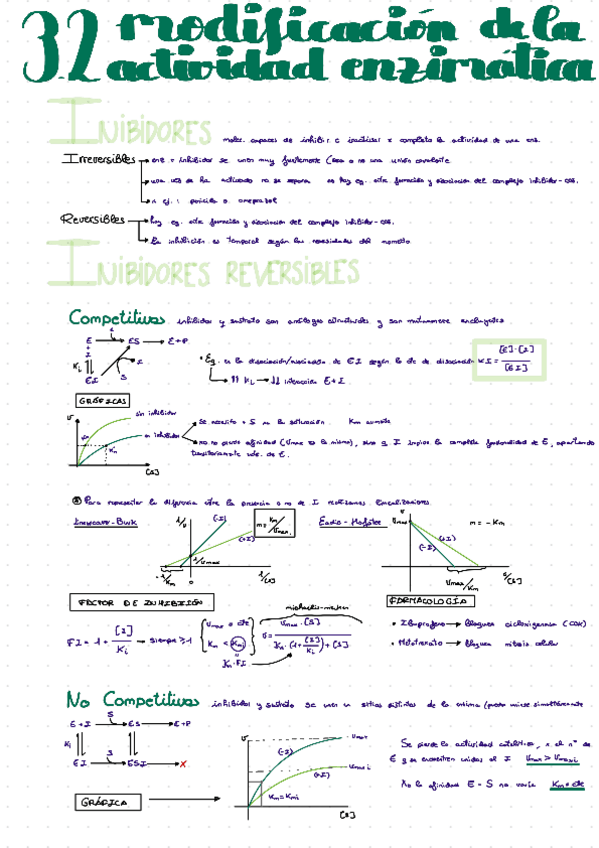 3.2 modificación de la
actividad enzimática
INIBIDORES
molec. capaces de inhibir o inactivar x completo la actividad de una enz.
Irreversibles
enz. e inhibidor se unen muy fuertemente (sea o no una unión covalente
una vez se ha activado no se separa no hay eq. entre formación y disociación del complejo inhibidor-enz.
Reversibles
hay eq. entre formación y disociación del complejo inhibidor-enz.
La inhibición es temporal según las necesidades del momento
INIBIDORES REVERSIBLES
Competitivos inhibidor y sustrato son análogos estructurales y son mutuamente excluyentes
E ES E+P
I
Ki
EI S
I
Eq. es la disociación/asociación de EI según la cte de disociación KI = [E]·[I] / [EI]
↑↑ Ki → ↓↓ interacción E+I
GRÁFICAS
V
sin inhibidor
con inhibidor
Km
[S]
Se necesita + S para la saturación. Km aumenta
no pierde afinidad (Vmax es la misma), sino q I impide la completa funcionalidad de E, apartando
transitoriamente
Para representar la diferencia entre la presencia o no de I realizamos linealizaciones
Lineweaver-Burk
1/V
(-I)
(+I)
m = Km/Vmax
1/Vmax
-1/Km
0
1/[S]
Eadie-Hofstee
V
Vmax
m = -Km
(+I)
(-I)
Vmax/Km
V/[S]
FACTOR DE INHIBICIÓN
FI = 1 + [I]/Ki → siempre ≥ 1
Vmax = cte
Km < Kmi
Km·FI
michaelis-menten
V = Vmax·[S] / Km·(1+[I]/Ki)+[S]
FARMACOLOGÍA
Ibuprofeno → Bloquea ciclooxigenasa (COX)
Metotrexato → Bloquea mitosis celular
No Competitivos inhibidor y sustrato se unen en sitios distintos de la enzima (puede unirse simultáneamente
E+I S ES E+P
Ki
EI S ESI X
GRÁFICA
V
(-I)
(+I)
Vmax
Vmaxi
Km=Kmi
[S]
Se pierde la actividad catalítica, x el nº de
E q se encuentren unidas al I Vmax > Vmaxi
No la afinidad E-S no varía Km=cte